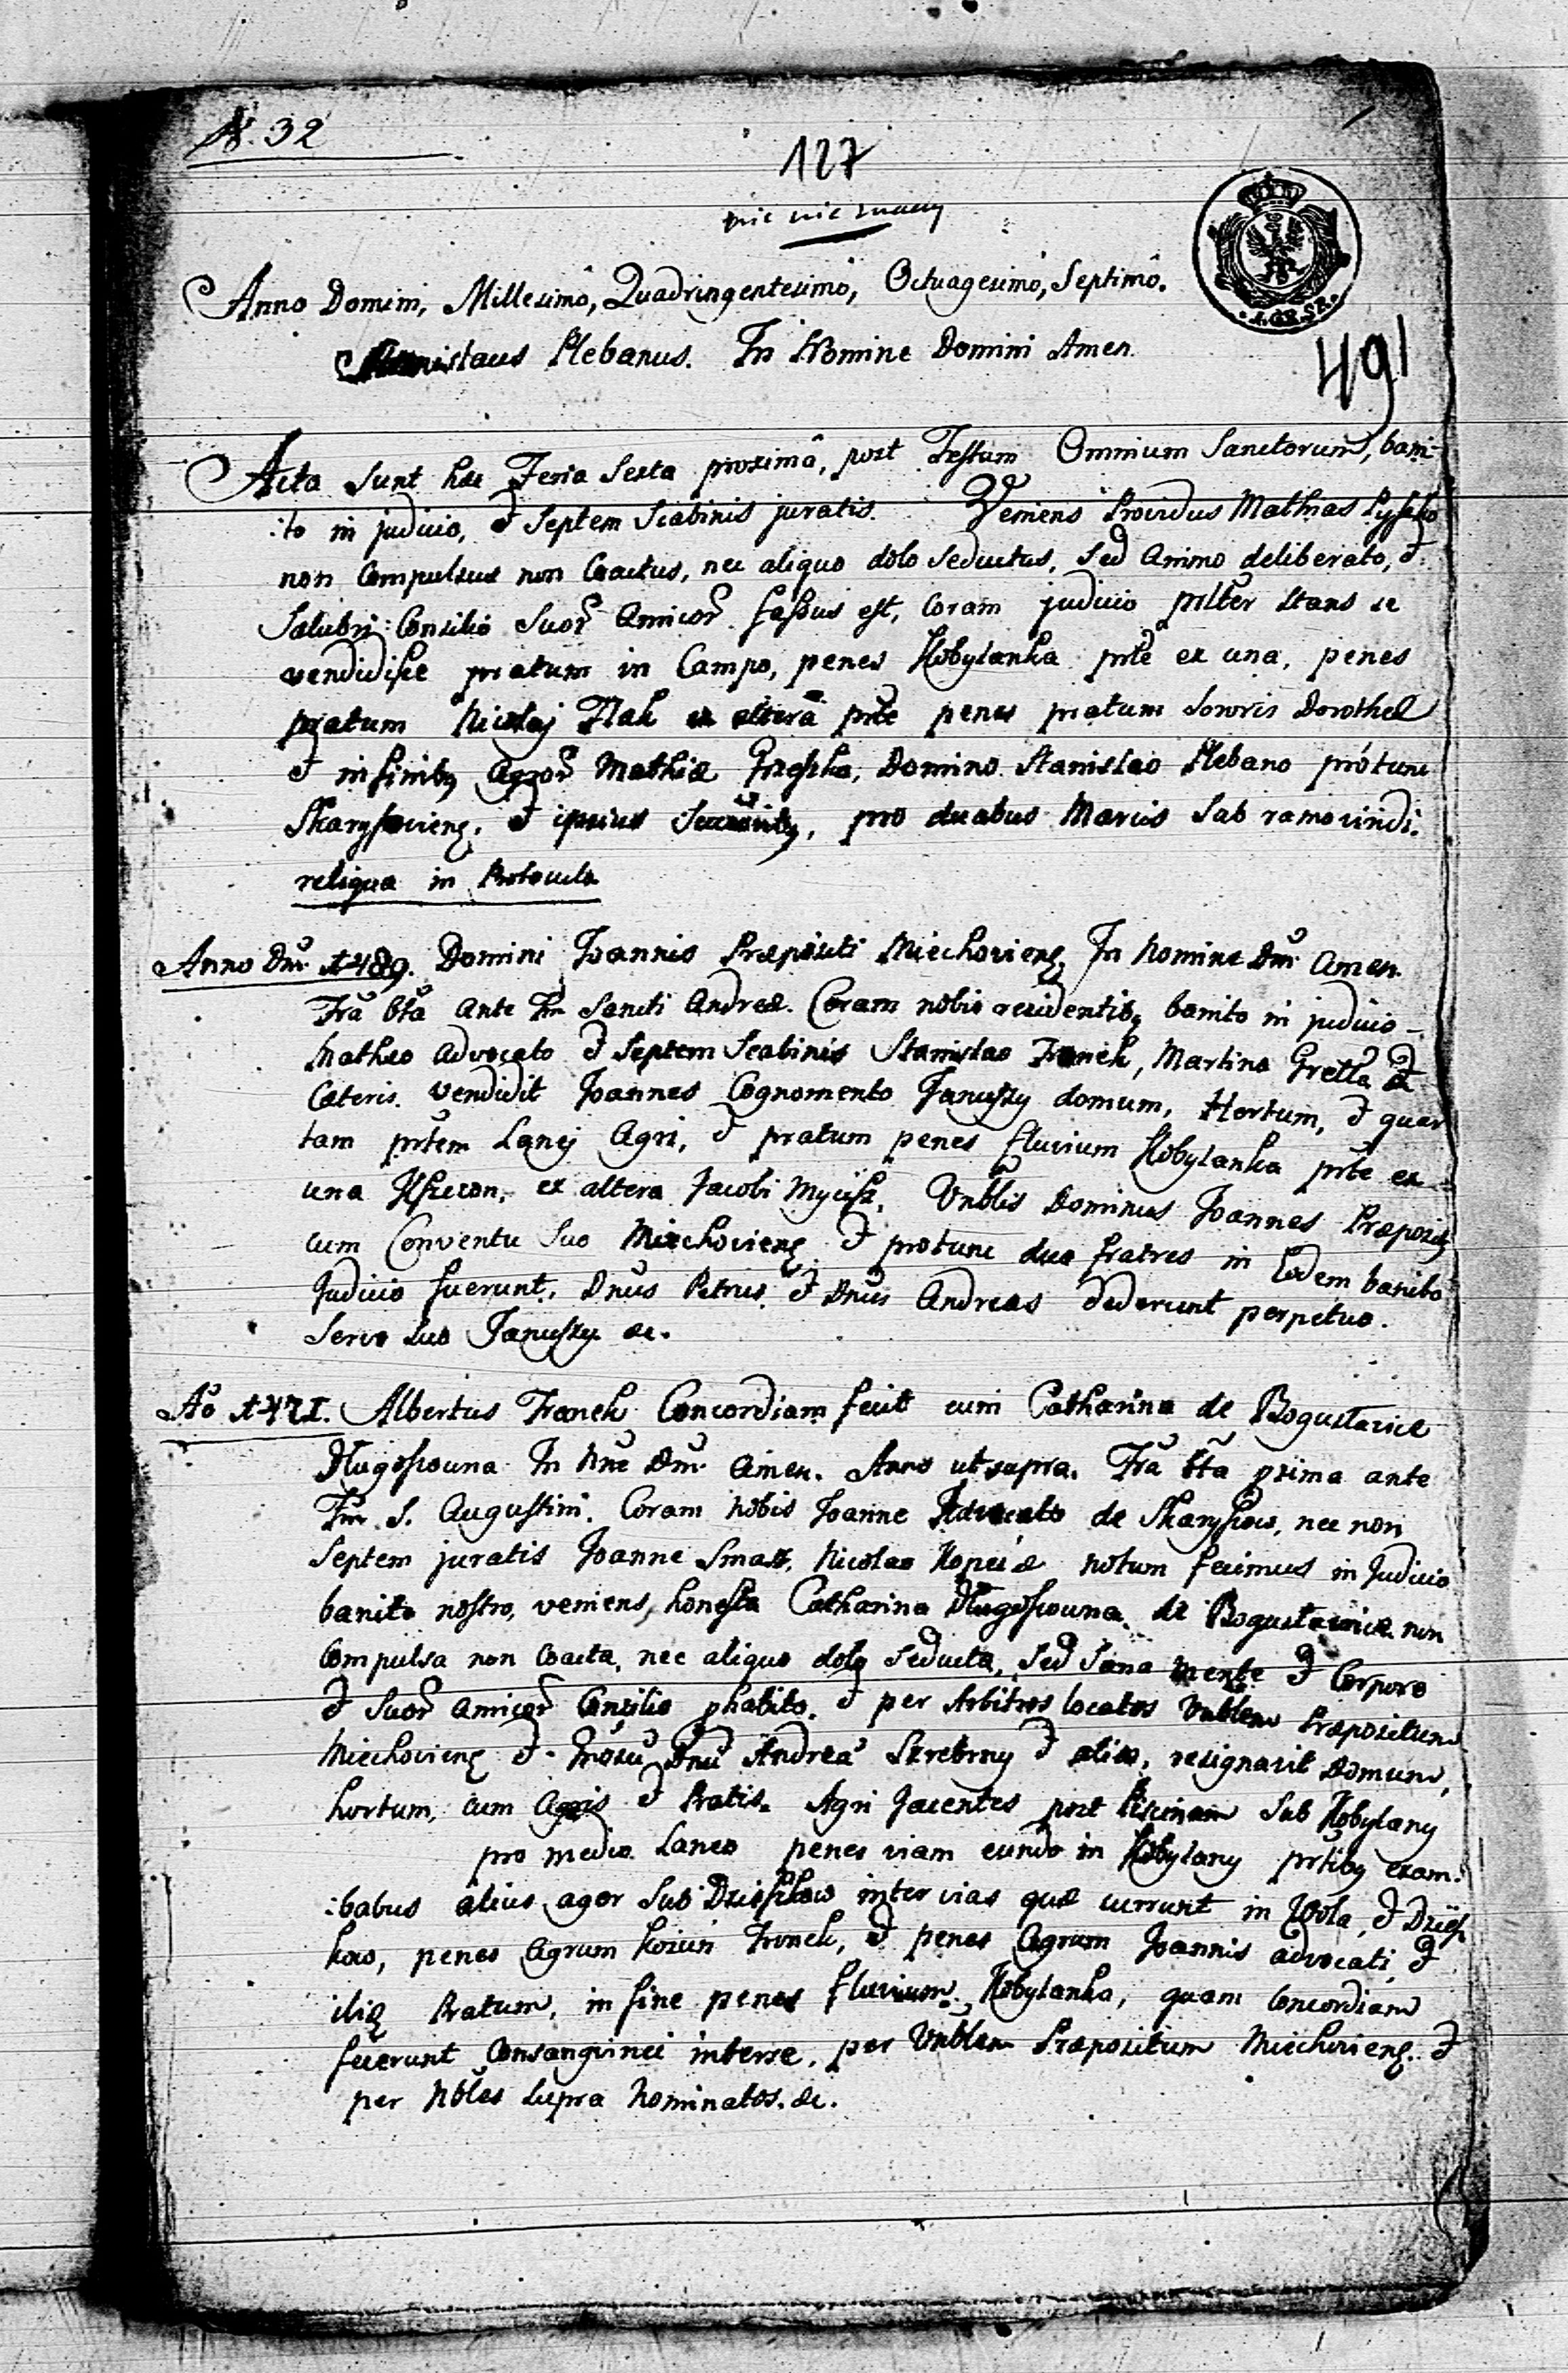 N. 32
127
nic nie znaczy
4. GR. SR.
491
Anno Domini, Millesimô, Quadringentesimô, Octuagesimô, Septimô.
Stanislaus Plebanus. In Nomine Domini Amen.
Acta sunt hæc Feria Sexta proximâ, post Festum Omnium Sanctorum, bani-
:to in judicio, et Septem Scabinis juratis. Veniens Providus Mathias Lyszko
non Compulsus non Coactus, nec aliquo dolo Seductus, Sed animo deliberato, et
Salubri Consilio Suor̃ Amicor̃ fassus est, Coram judicio prłter stans se
vendidisse pratum in Campo, penes Kobylanka prte ex una, penes
pratum Nicolaj Flak ex alterâ prte penes pratum Sororis Dorotheæ
et in finibꝫ Agror̃ Mathiæ Grzeszka, Domino Stanislao Plebano prótunc
Skaryszovienꝫ, et ipsius Successoribꝫ, pro duabus Marcis Sub ramo viridi.
reliqua in Protoculo
Anno Dni 1489. Domini Joannis Præpositi Miechovienꝫ. In Nomine Dni Amen.
Fra 6ta Ante Fm Sancti Andreæ. Coram nobis residentibꝫ banito in judicio
Matheo Advocato et Septem Scabinis Stanislao Fronek, Martino Gretka et
Cæteris. Vendidit Joannes Cognomento Januszy domum, Hortum, et quar
tam prtem Lanej Agri, et pratum penes fluvium Kobylanka prte ex
una, ex altera Jacobi. Vnblis Dominus Joannes Præpositꝫ
cum Conventu Suo Miechovienꝫ et protunc duo fratres in Eodem banito
Judicio fuerunt, Dnus Petrus et Dnus Andreas dederunt perpetuo.
Servo Suo Januszy &c.
Aõ 1471. Albertus Fronek Concordiam fecit cum Catharina de Bogusławice
Długoszowna In Nne Dni Amen. Anno ut supra. Fra 6ta prima ante
Fm S. Augustini. Coram Nobis Joanne Advocato de Skaryszow, nec non
Septem juratis Joanne Smaż, Nicolao Kopciæ notum fecimus in Judicio
banito nostro, veniens, honesta Catharina Długoszowna de Bogusławice non
Compulsa non Coacta, nec aliquo dolo Seducta, Sed Sana mente et Corpore
et Suor̃ amicor̃ Consilio phabito, et per Arbitros locatos Vnblem Præpositum
Miechovienꝫ et Dnũ Andreã Szrebrny et alios, resignavit Domum,
hortum, cum Agris et Pratis. Agri Jacentes post Piscinam Sub Kobylany
pro medio Laneo penes viam eundo in Kobylany prtibꝫ exam-
:babus alius ager Sub Dzieszkow inter vias quæ currunt in Wola, et Dziesz
kow, penes Agrum Fronek, et penes Agrum Joannis advocati, et
Pratum, in fine penes fluvium Kobylanka, quam Concordiam
fecerunt Consanguinei interse, per Vnblem Præpositum Miechovienꝫ. et
per Nbles Supra Nominatos. &c.